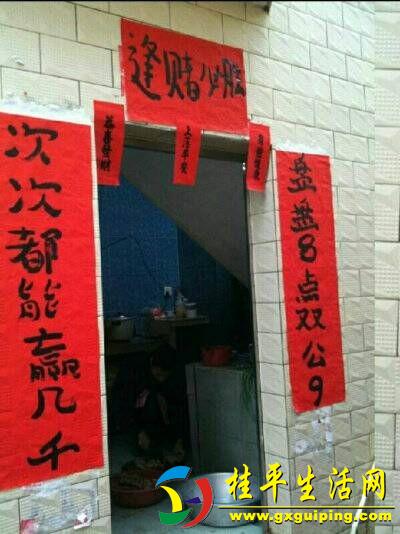 逢赌必胜
恭喜發财
上落平安
盘盘8点双公9
次次都能赢几千
桂平生活网
www.gxguiping.com